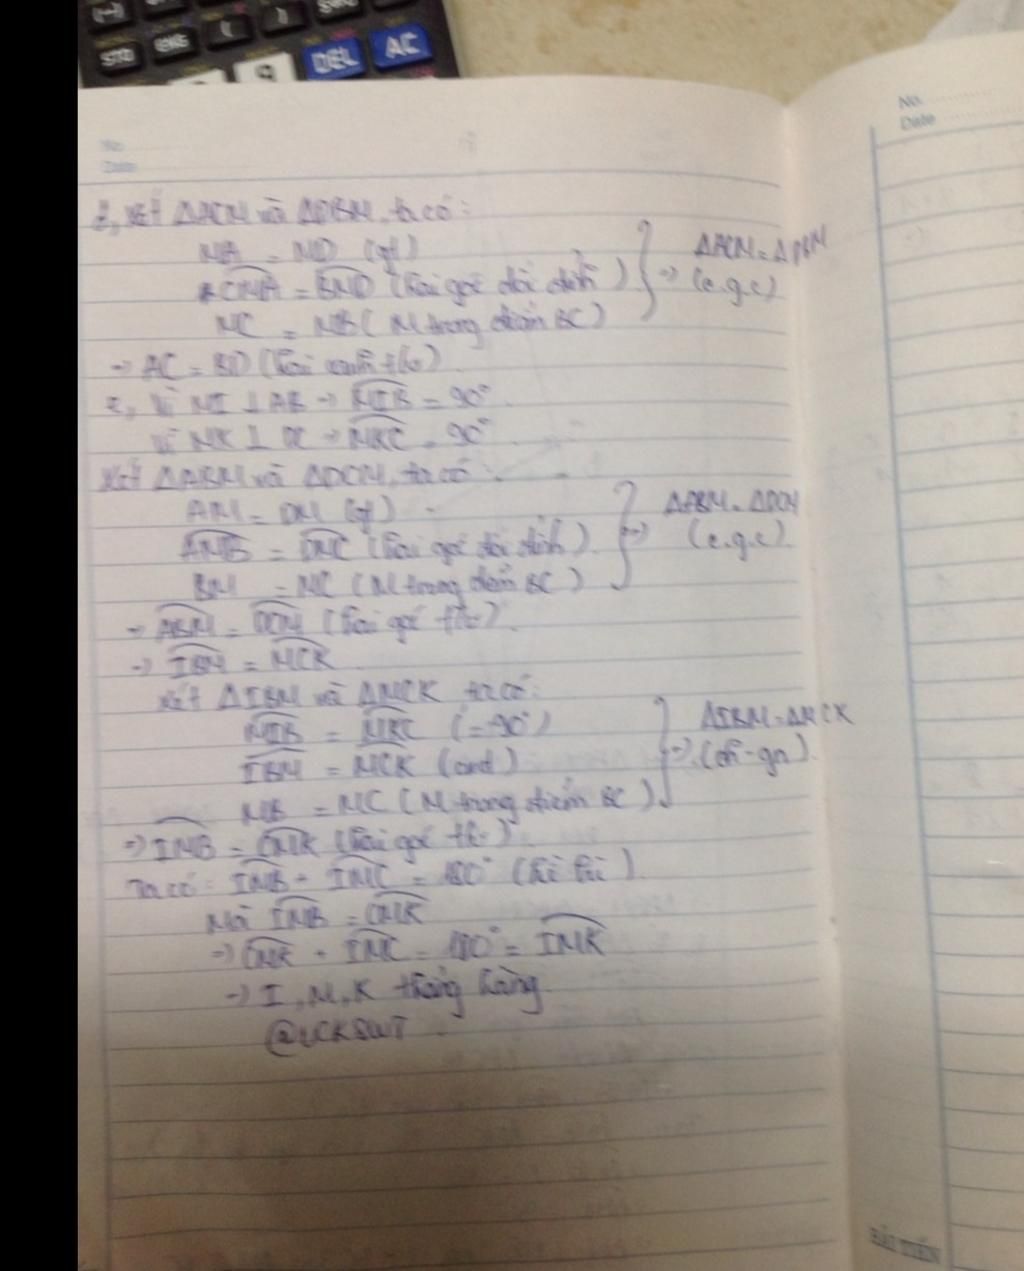 STO
ENG
(
)
DEL
AC
9
No.
Date
No.
Date
2, Xét ΔACM và ΔDBM, ta có:
MA = MD (gt)
CMA = BMD (hai góc đối đỉnh)
MC = MB (M trung điểm BC)
→ ΔACM = ΔDBM
(c.g.c)
→ AC = BD (hai cạnh t/ư)
Vì MI ⊥ AB → MIB = 90°
Vì MK ⊥ DC → MKC = 90°
Xét ΔABM và ΔDCM, ta có:
AM = DM (gt)
AMB = DMC (hai góc đối đỉnh)
BM = MC (M trung điểm BC)
→ ΔABM = ΔDCM
(c.g.c)
→ ABM = DCM (hai góc t/ư)
→ IBM = MCK
Xét ΔIBM và ΔMCK ta có:
MIB = MKC (=90°)
IBM = MCK (cmt)
MB = MC (M trung điểm BC)
→ ΔIBM = ΔMCK
(ch-gn)
→ IMB = CMK (hai góc t/ư)
Ta có: IMB + IMC = 180° (kề bù)
Mà IMB = CMK
→ CMK + IMC = 180° = IMK
→ I, M, K thẳng hàng
HẢI TIẾN